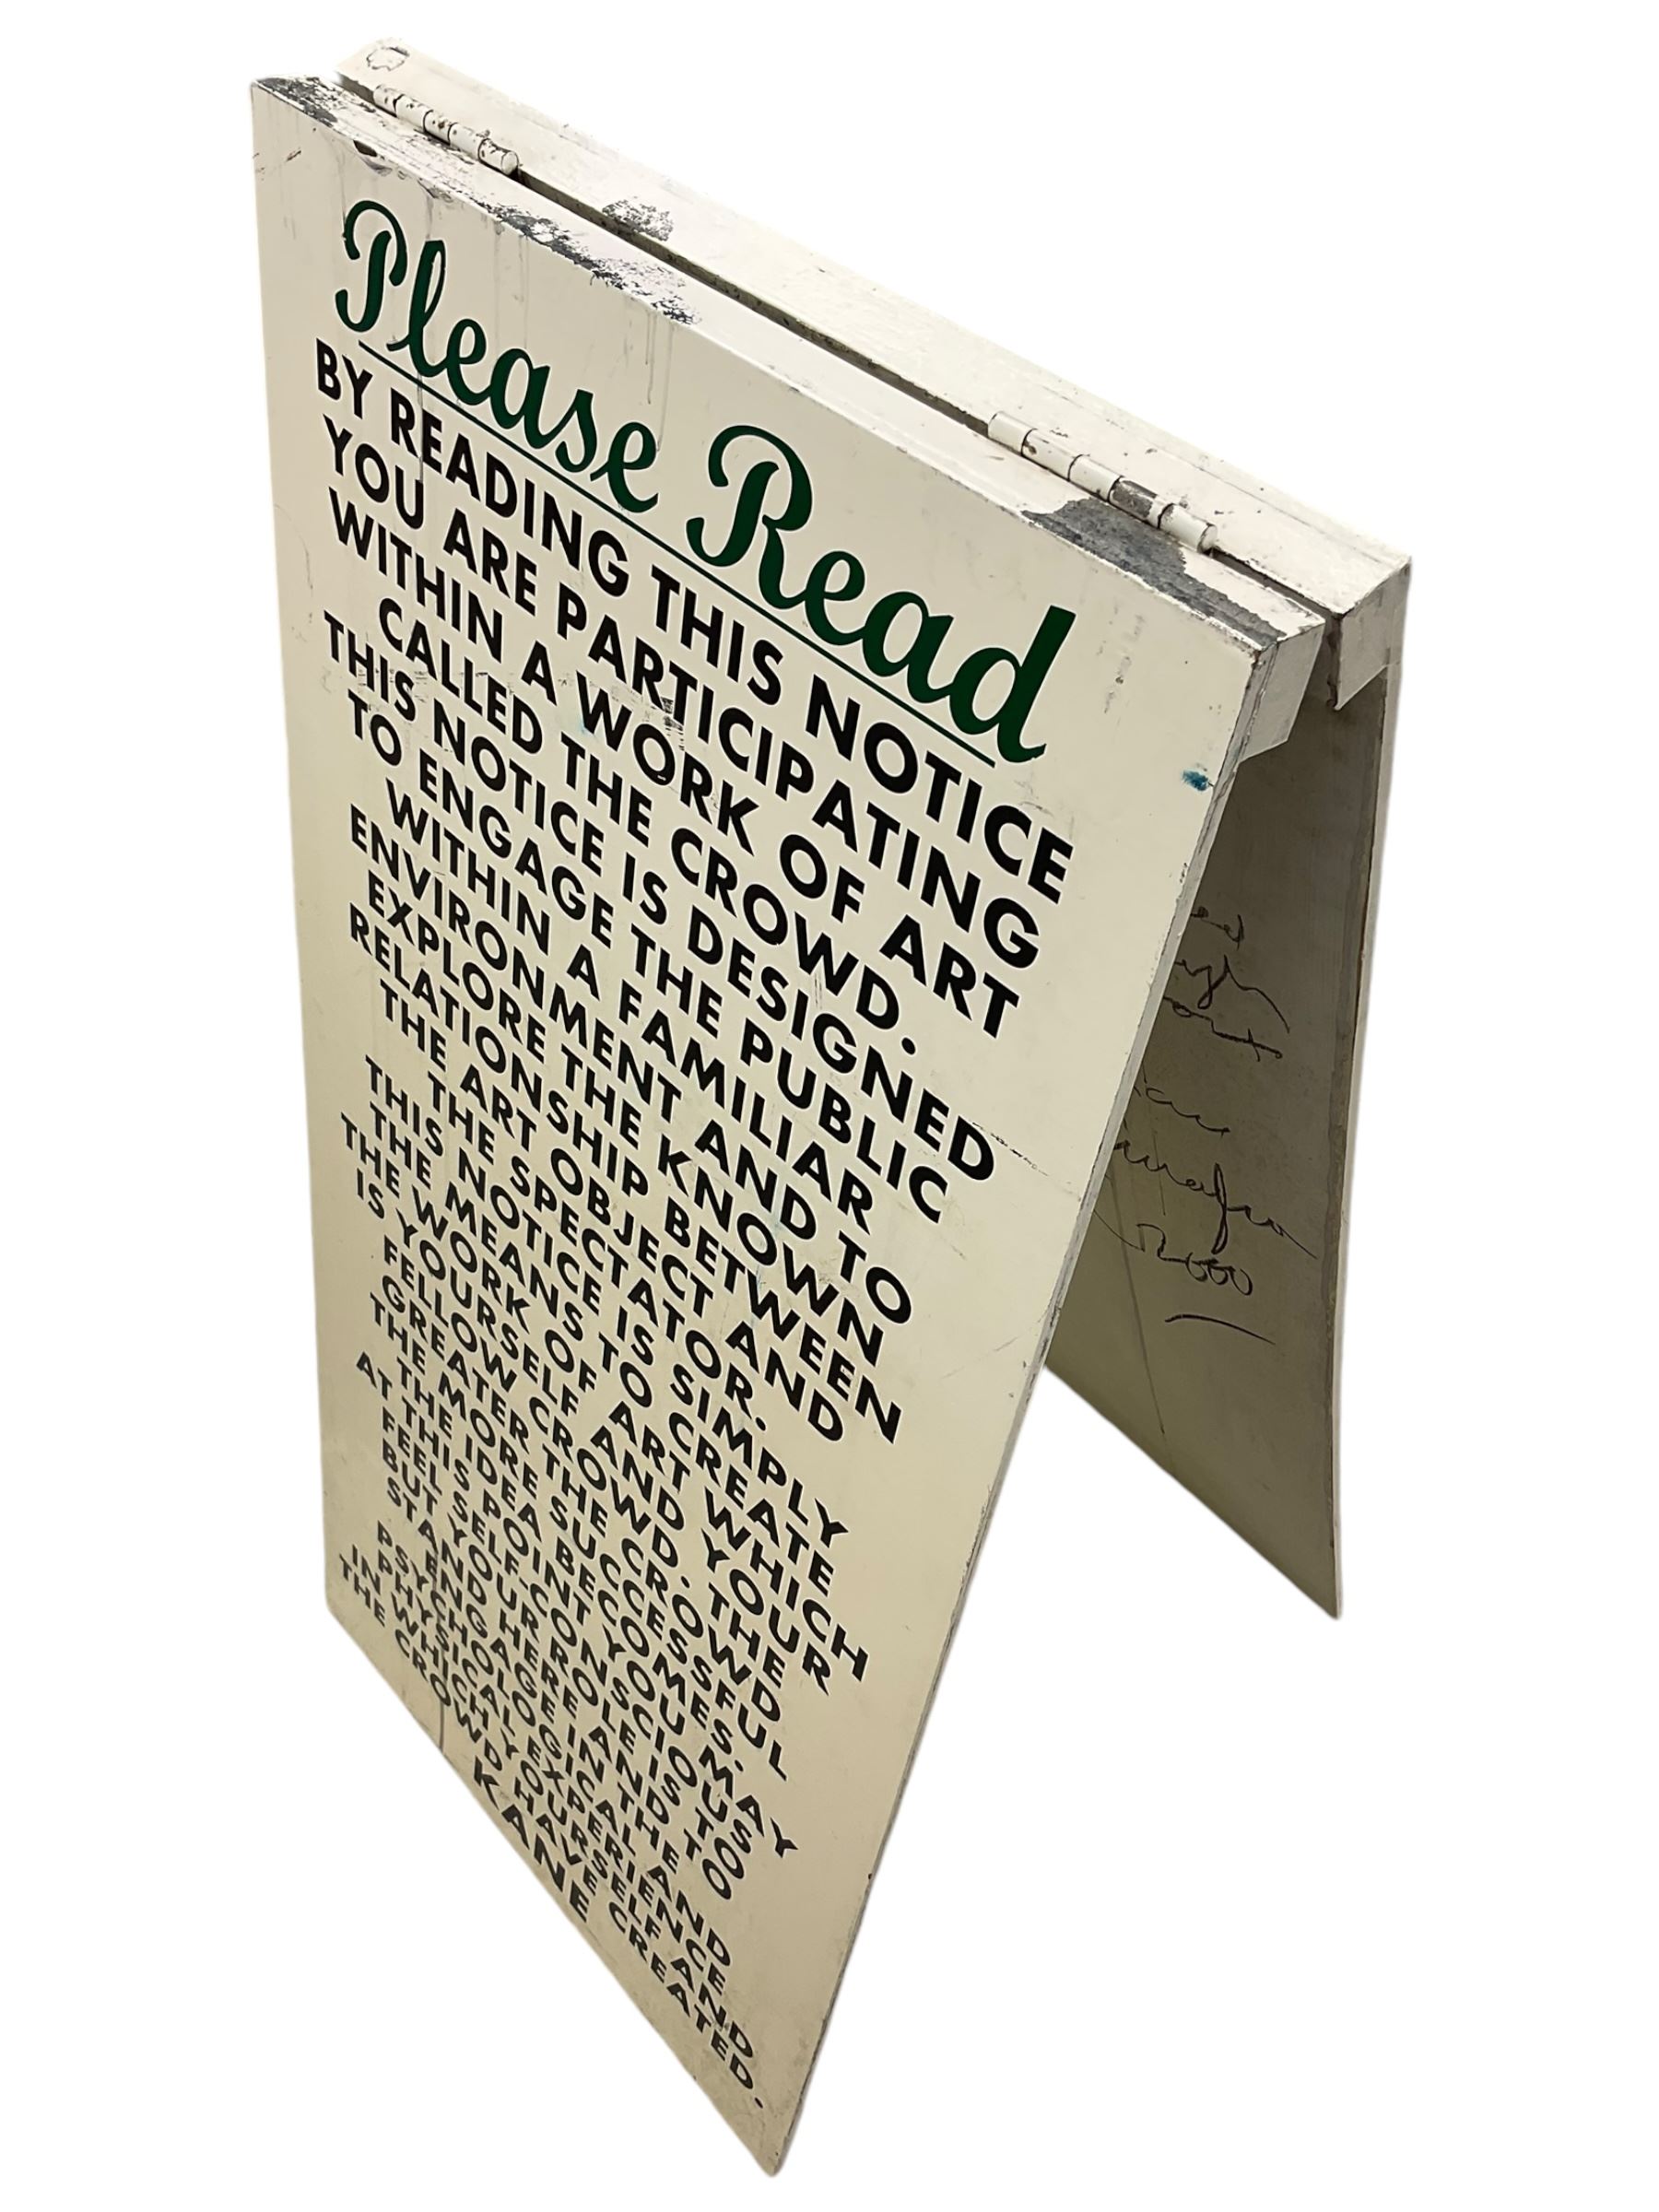 Please Read
BY READING THIS NOTICE
YOU ARE PARTICIPATING
WITHIN A WORK OF ART
CALLED THE CROWD.
THIS NOTICE IS DESIGNED
TO ENGAGE THE PUBLIC
WITHIN A FAMILIAR
ENVIRONMENT AND TO
EXPLORE THE KNOWN
RELATIONSHIP BETWEEN
THE ART OBJECT AND
THE SPECTATOR.
THIS NOTICE IS SIMPLY
THE MEANS TO CREATE
THE WORK OF ART WHICH
IS YOURSELF AND YOUR
FELLOW CROWD. THE
GREATER THE CROWD
THE MORE SUCCESSFUL
THE IDEA BECOMES.
AT THIS POINT YOU MAY
FEEL SELF-CONSCIOUS
BUT YOUR ROLE IS TO
STAND HERE AND TO
ENGAGE IN THE
PSYCHOLOGICAL AND
PHYSICAL EXPERIENCE
IN WHICH YOURSELF AND
THE CROWD HAVE CREATED.
KANE
2000